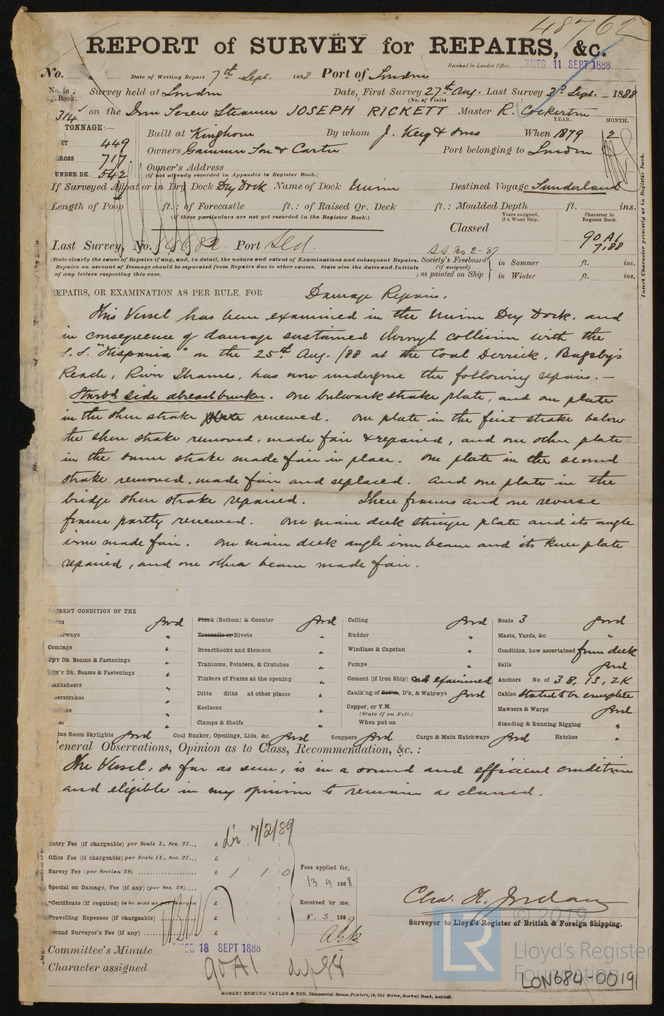 48762
REPORT of SURVEY for REPAIRS, &c.
Received in London Office, TUES 11 SEPT 1888
No. Date of Writing Report 7th Sept. 1888 Port of London
No. in Book. Survey held at London Date, First Survey 27th Aug. Last Survey 3rd Sept. 1888
(No. of Visits)
314 on the Iron Screw Steamer JOSEPH RICKETT Master R. Cockerton
TONNAGE:— YEAR. MONTH.
449 Built at Kinghorn By whom J. Key & Sons When 1879 2
GROSS 717 Owners Gammon Son & Carter Port belonging to London
UNDER DK. 542 Owner's Address
(if not already recorded in Appendix to Register Book.)
If Surveyed Afloat or in Dry Dock Dry Dock Name of Dock Union Destined Voyage Sunderland
Length of Poop ft.: of Forecastle ft.: of Raised Qr. Deck ft.: Moulded Depth ft. ins.
(if these particulars are not yet recorded in the Register Book.)
Years assigned, if a Wood Ship. Character in Register Book.
Classed 90A1
7,88
Last Survey, No. Port Sld.
S.S. No 2-87
(State clearly the cause of Repairs, if any, and, in detail, the nature and extent of Examinations and subsequent Repairs.
Repairs on account of Damage should be separated from Repairs due to other causes. State also the dates and initials
of any letters respecting this case.
Society's Freeboard (if assigned) as painted on Ship in Summer ft. ins.
in Winter ft. ins.
Insert Character precisely as in Register Book.
REPAIRS, OR EXAMINATION AS PER RULE, FOR Damage Repairs.
This Vessel has been examined in the Union Dry Dock. and
in consequence of damage sustained through collision with the
S.S. "Hispania" on the 25th Aug. /88 at the Coal Derrick, Bugsby's
Reach, River Thames, has now undergone the following repairs.—
Starbd side abreast bunker. One bulwark strake plate, and one plate
in the sheer strake renewed. One plate in the first strake below
the sheer strake removed, made fair & repaired, and one other plate
in the same strake made fair in place. One plate in the second
strake removed, made fair and replaced. And one plate in the
bridge sheer strake repaired. Three frames and one reverse
frame partly renewed. One main deck stringer plate and its angle
iron made fair. One main deck angle iron beam and its knee plate
repaired, and one other beam made fair.
PRESENT CONDITION OF THE
Good Plank (Bottom) & Counter Good Ceiling Good Boats 3 Good
Waterways " Treenails or Rivets " Rudder " Masts, Yards, &c. "
Comings " Breasthooks and Stemson Windlass & Capstan " Condition, how ascertained from deck
Up'r Dk. Beams & Fastenings " Transoms, Pointers, & Crutches Pumps " Sails Good
Timbers of Frame at the opening Cement (if Iron Ship) examined Anchors No. of 3 B, 1 S, 2 K
Ditto ditto at other places Caulk'g of D'k, & Watrwys Good Cables stated to be complete
Keelsons Copper, or Y.M. Hawsers & Warps Good
(State if on Felt.)
Clamps & Shelfs When put on Standing & Running Rigging "
Engine Room Skylights Good Coal Bunker, Openings, Lids, &c. Good Scuppers Good Cargo & Main Hatchways Good Hatches "
General Observations, Opinion as to Class, Recommendation, &c.:
The Vessel, so far as seen, is in a sound and efficient condition
and eligible in my opinion to remain as classed.
Entry Fee (if chargeable) per Scale I., Sec. 27... £
Office Fee (if chargeable) per Scale II., Sec. 27... £
Survey Fee (per Section 28) £ 1 : 1 : 0
Special on Damage, Fee (if any) (per Sec. 28) £
Certificate (if required) £
Travelling Expenses (if chargeable) £
Second Surveyor's Fee (if any) £
7/2/89
Fees applied for,
13 9 1888
Received by me,
Chas. H. Jordan
Surveyor to Lloyd's Register of British & Foreign Shipping.
Committee's Minute TUES 18 SEPT 1888
Character assigned 90A1
© 2019
LR
Lloyd's Register
Foundation
LON684-0019
ROBERT EDMUND TAYLOR & SON, Commercial Steam Printers, 19, Old Street, Goswell Road, London.